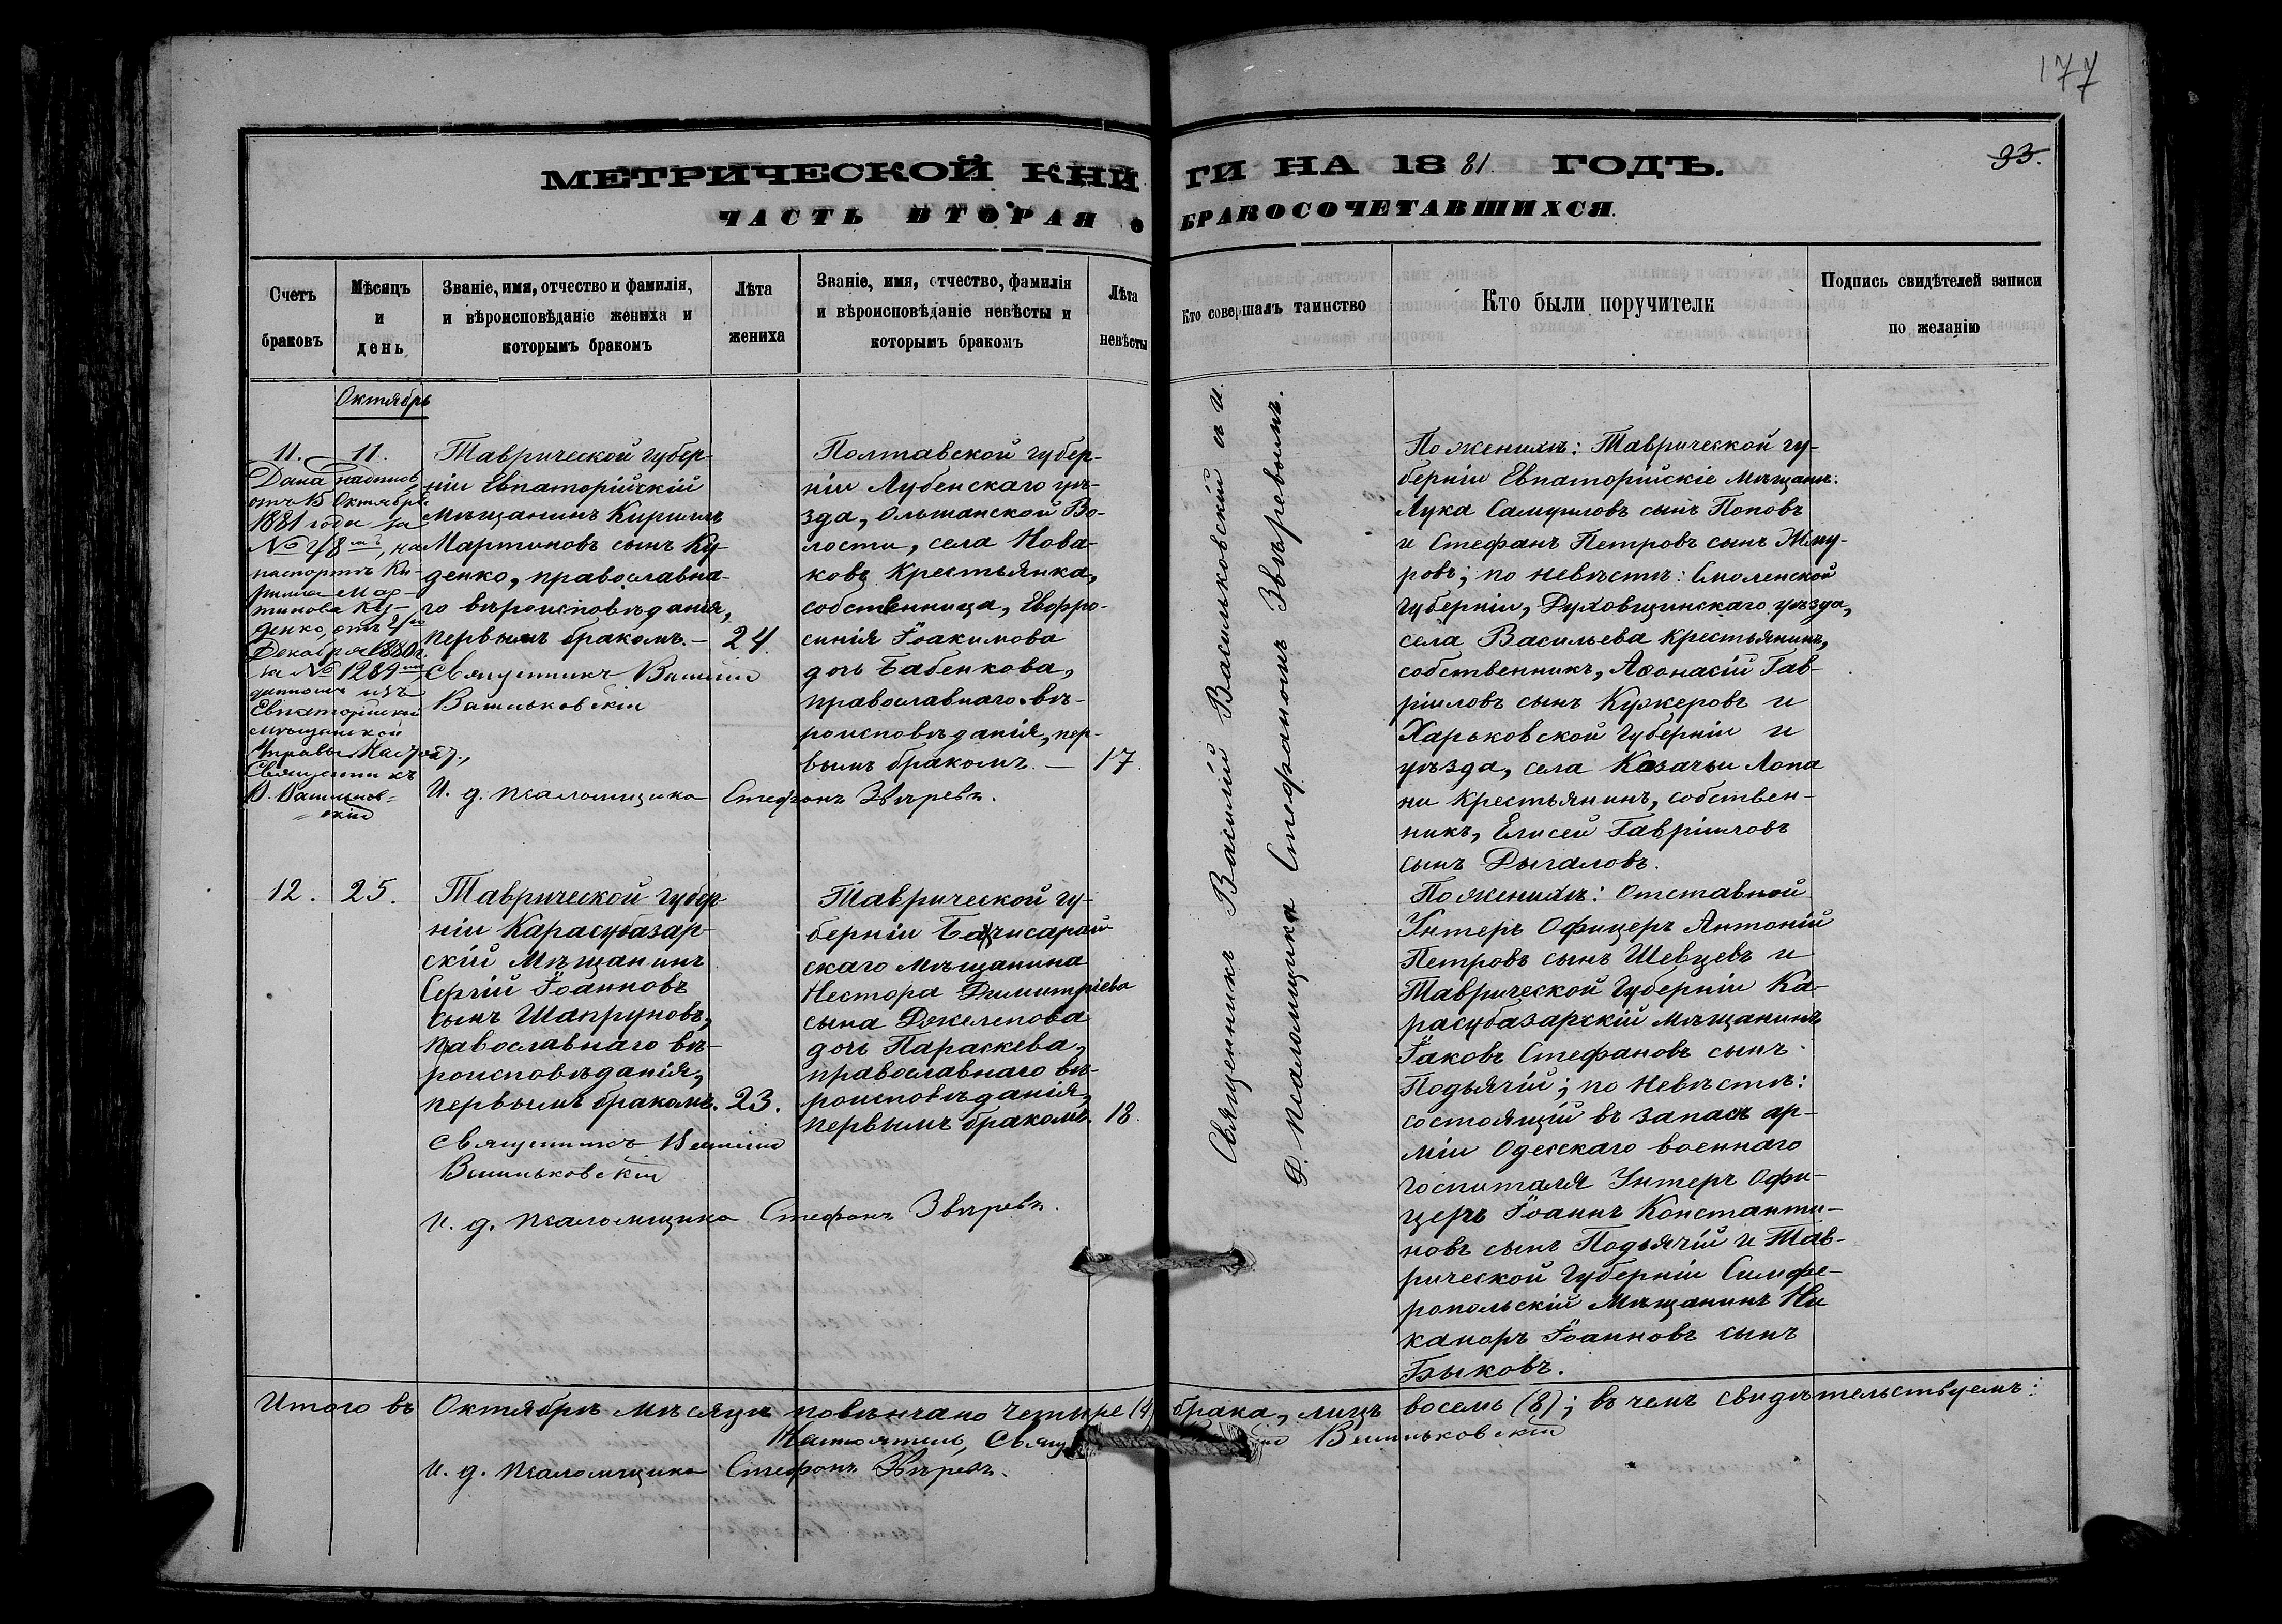 177
93.
МЕТРИЧЕСКОЙ КНИГИ НА 1881 ГОДЪ.
ЧАСТЬ ВТОРАЯ о БРАКОСОЧЕТАВШИХСЯ.
Счетъ браковъ
Мѣсяцъ и день
Званіе, имя, отчество и фамилія,
и вѣроисповѣданіе жениха и
которымъ бракомъ
Лѣта жениха
Званіе, имя, отчество, фамилія
и вѣроисповѣданіе невѣсты и
которымъ бракомъ
Лѣта невѣсты
Кто совершалъ таинство
Кто были поручители
Подпись свидѣтелей записи
по желанію
Октябрь
11.
11.
Дана надпись,
отъ 15 Октября
1881 года за
№ 48мъ, на
паспортѣ Ки-
рилла Мар-
тинова Ку-
ценко, отъ 4го
Декабря 1880 г.
за № 1289мъ
данномъ изъ
Евпаторійской
мѣщанской
Управы. Настоят.,
Священникъ
В. Васильков-
скій
Таврической губер-
ніи Евпаторійскій
Мѣщанинъ Кириллъ
Мартиновъ сынъ Ку-
ценко, православна-
го вѣроисповѣданія,
первымъ бракомъ. —
24.
Священникъ Василій
Васильковскій
И. д. псаломщика Стефанъ Звѣревъ.
Полтавской губер-
ніи Лубенскаго уѣ-
зда, Ольшанской Во-
лости, села Нова-
ковъ Крестьянка,
собственница, Евфро-
синія Іоакимова
дочь Бабенкова,
православнаго вѣ-
роисповѣданія, пер-
вымъ бракомъ. —
17.
Священникъ Василій Васильковскій съ и.
д. псаломщика Стефаномъ Звѣревымъ.
По женихѣ: Таврической гу-
берніи Евпаторійскіе Мѣщане:
Лука Самуиловъ сынъ Поповъ
и Стефанъ Петровъ сынъ Жму-
ровъ; по невѣстѣ: Смоленской
Губерніи, Духовщинскаго уѣзда,
села Васильева Крестьянинъ,
собственникъ, Аѳонасій Гав-
ріиловъ сынъ Кужеровъ и
Харьковской Губерніи и
уѣзда, села Казачьи Лопа
ни Крестьянинъ, собствен-
никъ, Елисей Гавріиловъ
сынъ Дыгаловъ.
12.
25.
Таврической губер-
ніи Карасубазар-
скій Мѣщанинъ
Сергій Іоанновъ
сынъ Шапруновъ,
православнаго вѣ-
роисповѣданія,
первымъ бракомъ.
23.
Священникъ Василій
Васильковскій
И. д. псаломщика Стефанъ Звѣревъ.
Таврической гу-
берніи Бахчисарай-
скаго мѣщанина
Нестора Димитріева
сына Джелепова
дочь Параскева,
православнаго вѣ-
роисповѣданія,
первымъ бракомъ.
18.
По женихѣ: отставной
Унтеръ Офицеръ Антоній
Петровъ сынъ Шевцевъ и
Таврической Губерніи Ка-
расубазарскій мѣщанинъ
Іаковъ Стефановъ сынъ
Подьячій; по невѣстѣ:
состоящій въ запасѣ ар-
міи Одесскаго военнаго
госпиталя Унтеръ Офи-
церъ Іоаннъ Константи-
новъ сынъ Подьячій и Тав-
рической Губерніи Симфе-
ропольскій Мѣщанинъ Ни
каноръ Іоанновъ сынъ
Быковъ.
Итого въ Октябрѣ мѣсяцѣ повѣнчано четыре (4) брака, лицъ восемь (8); въ чемъ свидѣтельствуемъ:
Настоятель, Свящ Васильковскій
И. д. псаломщика Стефанъ Звѣревъ.